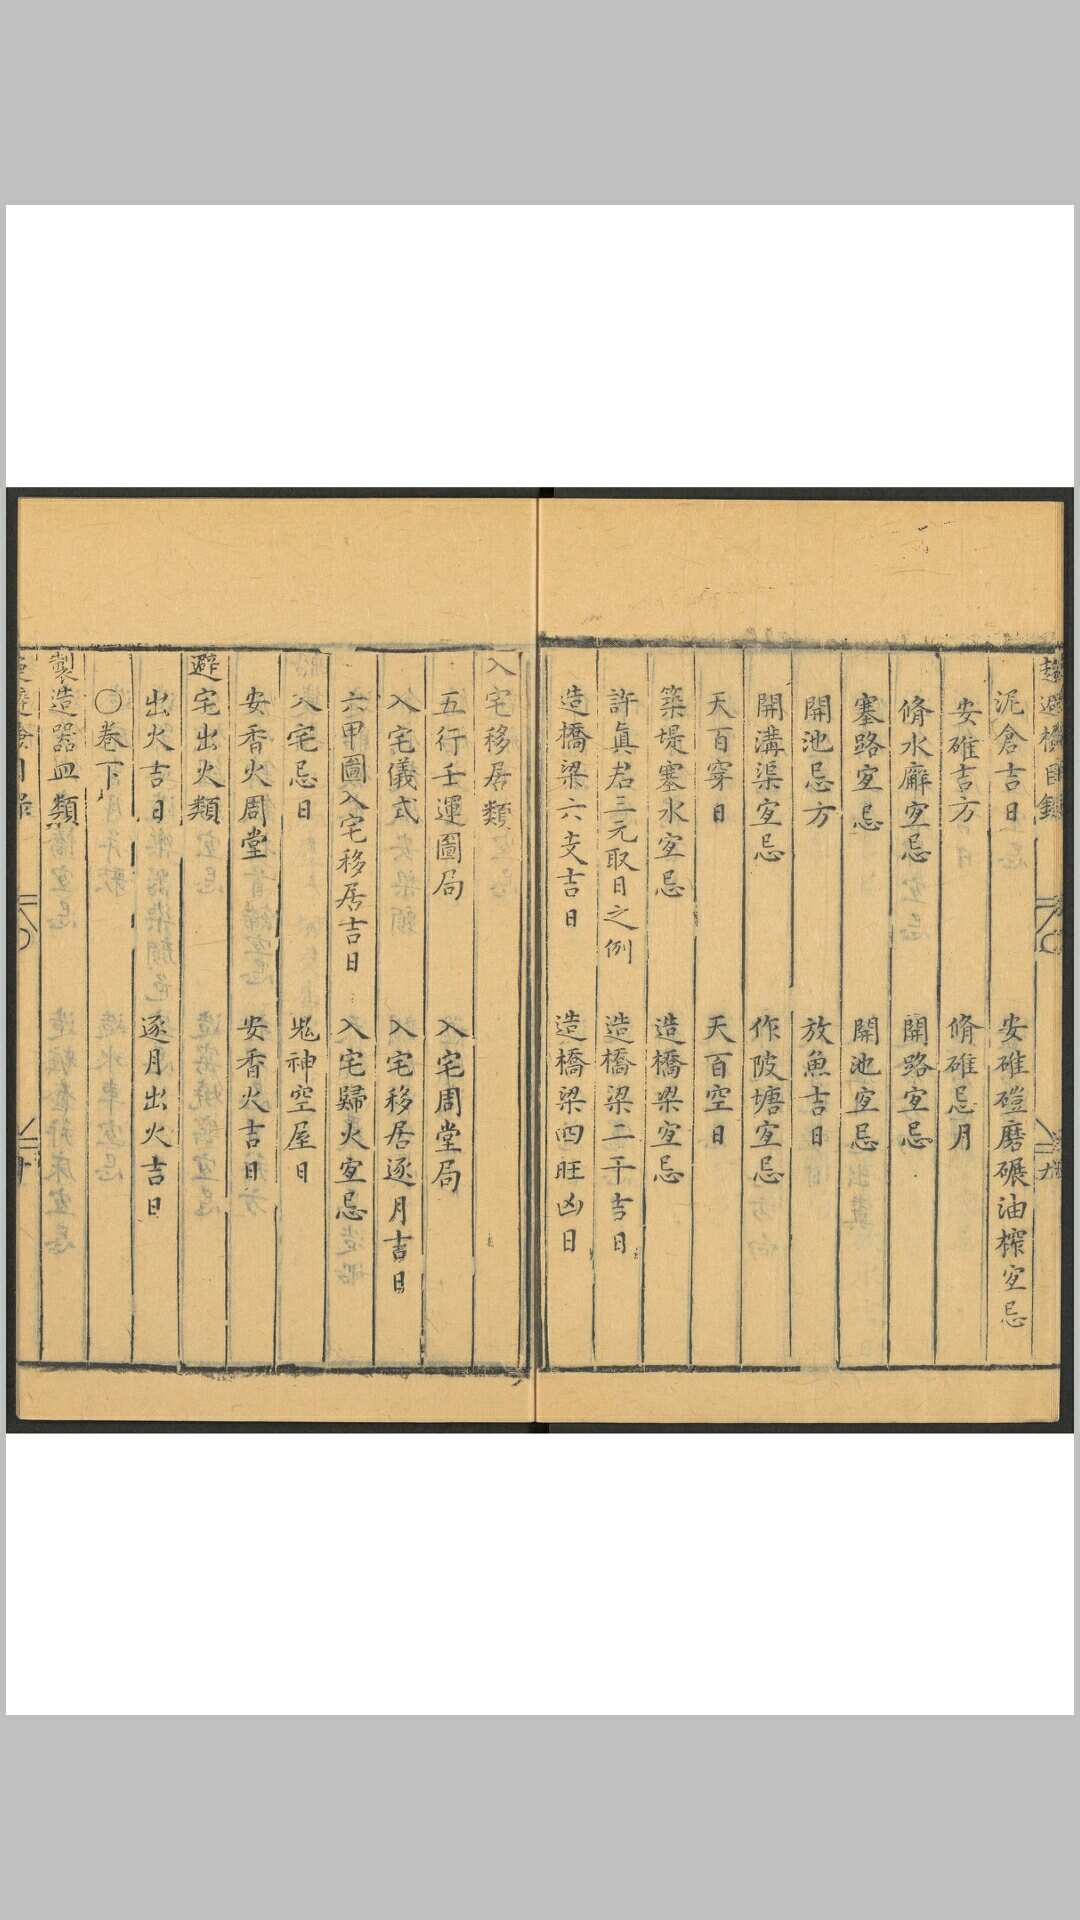 泥倉吉日 安碓磑磨碾油榨宐忌
安碓吉方 脩碓忌月
脩水廨宐忌 開路宐忌
塞路宐忌 開池宐忌
開池忌方 放魚吉日
開溝渠宐忌 作陂塘宐忌
天百穿日 天百空日
築堤塞水宐忌 造橋梁宐忌
許眞君三元取日之例 造橋梁二干吉日
造橋梁六支吉日 造橋梁四旺凶日
入宅移居類
五行壬運圖局 入宅周堂局
入宅儀式 入宅移居逐月吉日
六甲圖入宅移居吉日 入宅歸火宐忌
入宅忌日 鬼神空屋日
安香火周堂 安香火吉日
避宅出火類
出火吉日 逐月出火吉日
〇卷下
製造器皿類